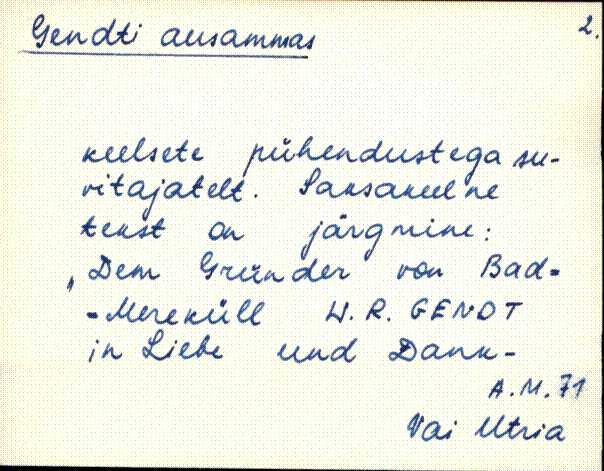 Gendti ausammas
2.
keelsete pühendustega su-
vitajatelt. Saksakeelne
tekst on järgmine:
„Dem Gründer von Bad-
-Mereküll W. R. GENDT
in Liebe und Dank-
A.M. 71
Vai Utria